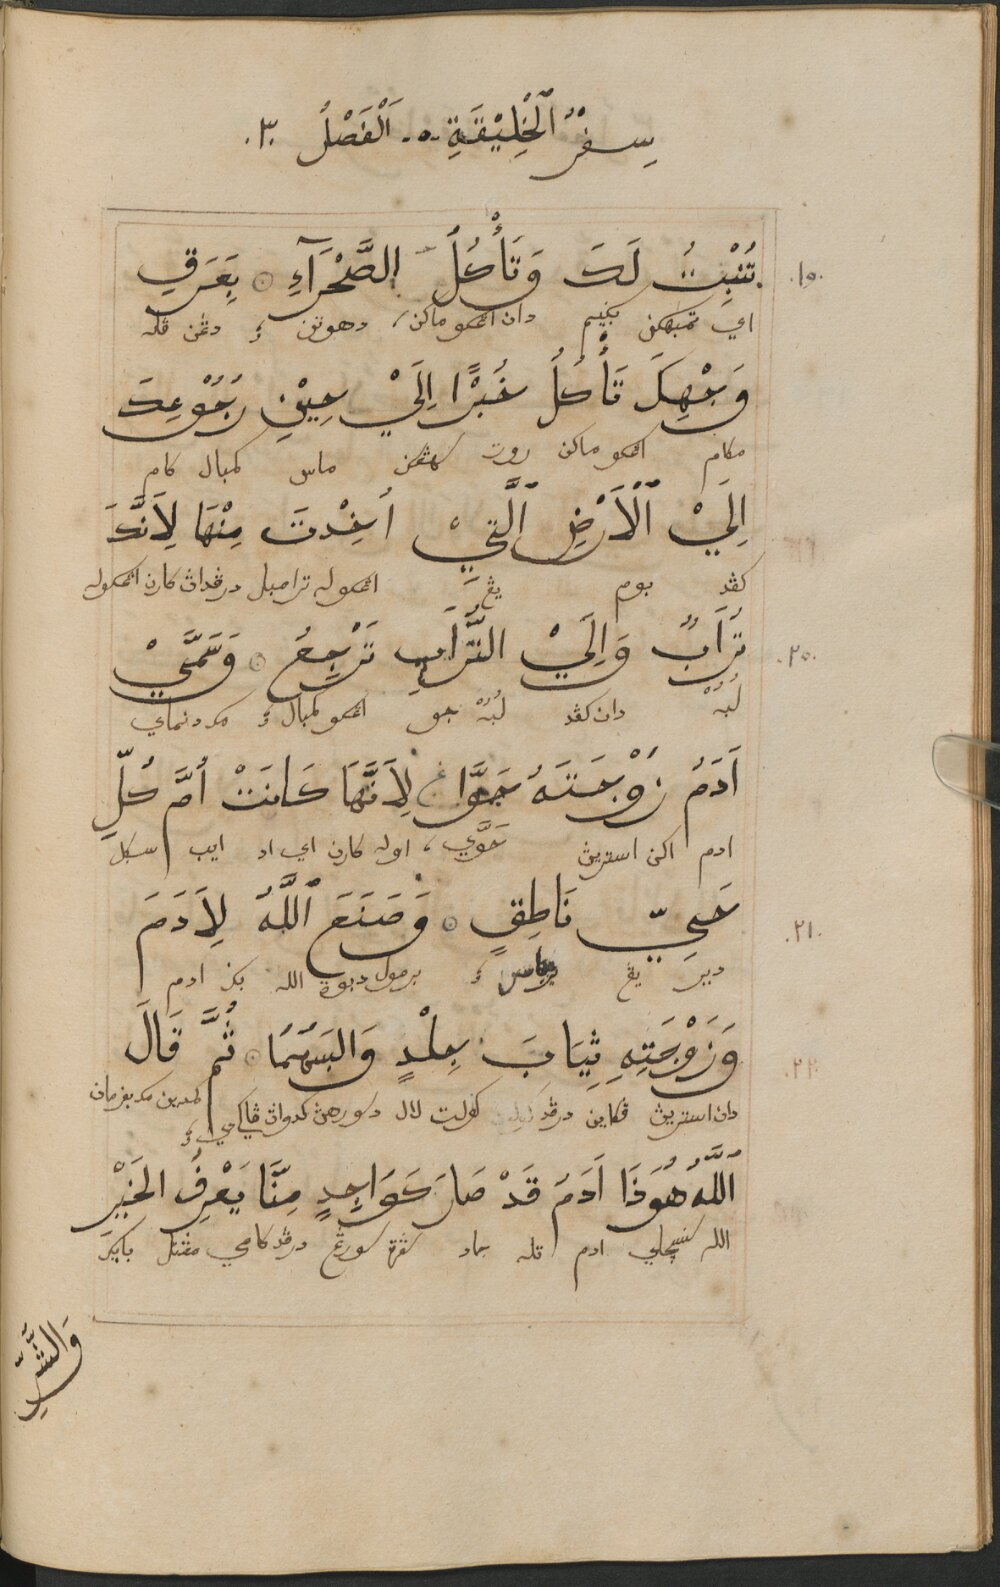 سِفْرُ ٱلْخَلِيْقَةِ ۰ اَلْفَصْلُ ٣.
تُنْبِتُ لَكَ وَتَأْكُلُ الصَّحْرَآءِ ۝ بِعَرَقِ
.١٥.
اي تمبهكن بݢيم دان اڠكو ماكن، دهوتن ؛ دڠن ڤله
وَجْهِكَ تَأْكُلُ خُبْزًا اِلَيْ حِيْنِ رُجُوْعِكَ
مكام اڠكو ماكن روت ماس كمبال كام
اِلَيْ ٱلْاَرْضِ ٱلَّتِيْ اُخِذْتَ مِنْهَا لِاَنَّكَ
كڤد بوم يڠ اڠكوله ترامبل درڤداڽ كارن اڠكوله
تُرَابٌ وَاِلَيْ التُّرَابِ تَرْجِعُ ۝ وَسَمَّيْ
.٢٠.
لُبُهْ دان كڤد لُبُهْ جو اڠكو كمبال ؛ مك دنماي
اَدَمُ زَوْجَتَهُ حَوَّا لِاَنَّهَا كَانَتْ اُمَّ كُلِّ
ادم اكن استريڽ حَوَّي، اوله كارن اي اد ايب سكل
حَيِّ نَاطِقٍ ۝ وَصَنَعَ ٱللّٰهُ لِاَدَمَ
.٢١.
يڠ ؛ برمول دبوة الله بݢ ادم
وَزَوْجَتِهِ ثِيَابَ جِلْدٍ وَالبَسَهُمَا ۝ ثُمَّ قَالَ
.٢٢.
دان استريڽ ڤكاين درڤد كولت لال كدواڽ ڤاكي ؛ كمدين مك بفرمان
ٱللّٰهُ هُوَذَا اَدَمَ قَدْ صَارَ كَوَاحِدٍ مِنَّا يَعْرِفُ الخَيْرَ
الله ادم تله جاد سڤرة سورڠ درڤد كامي مڠنل بايك
وَالشَّرِّ